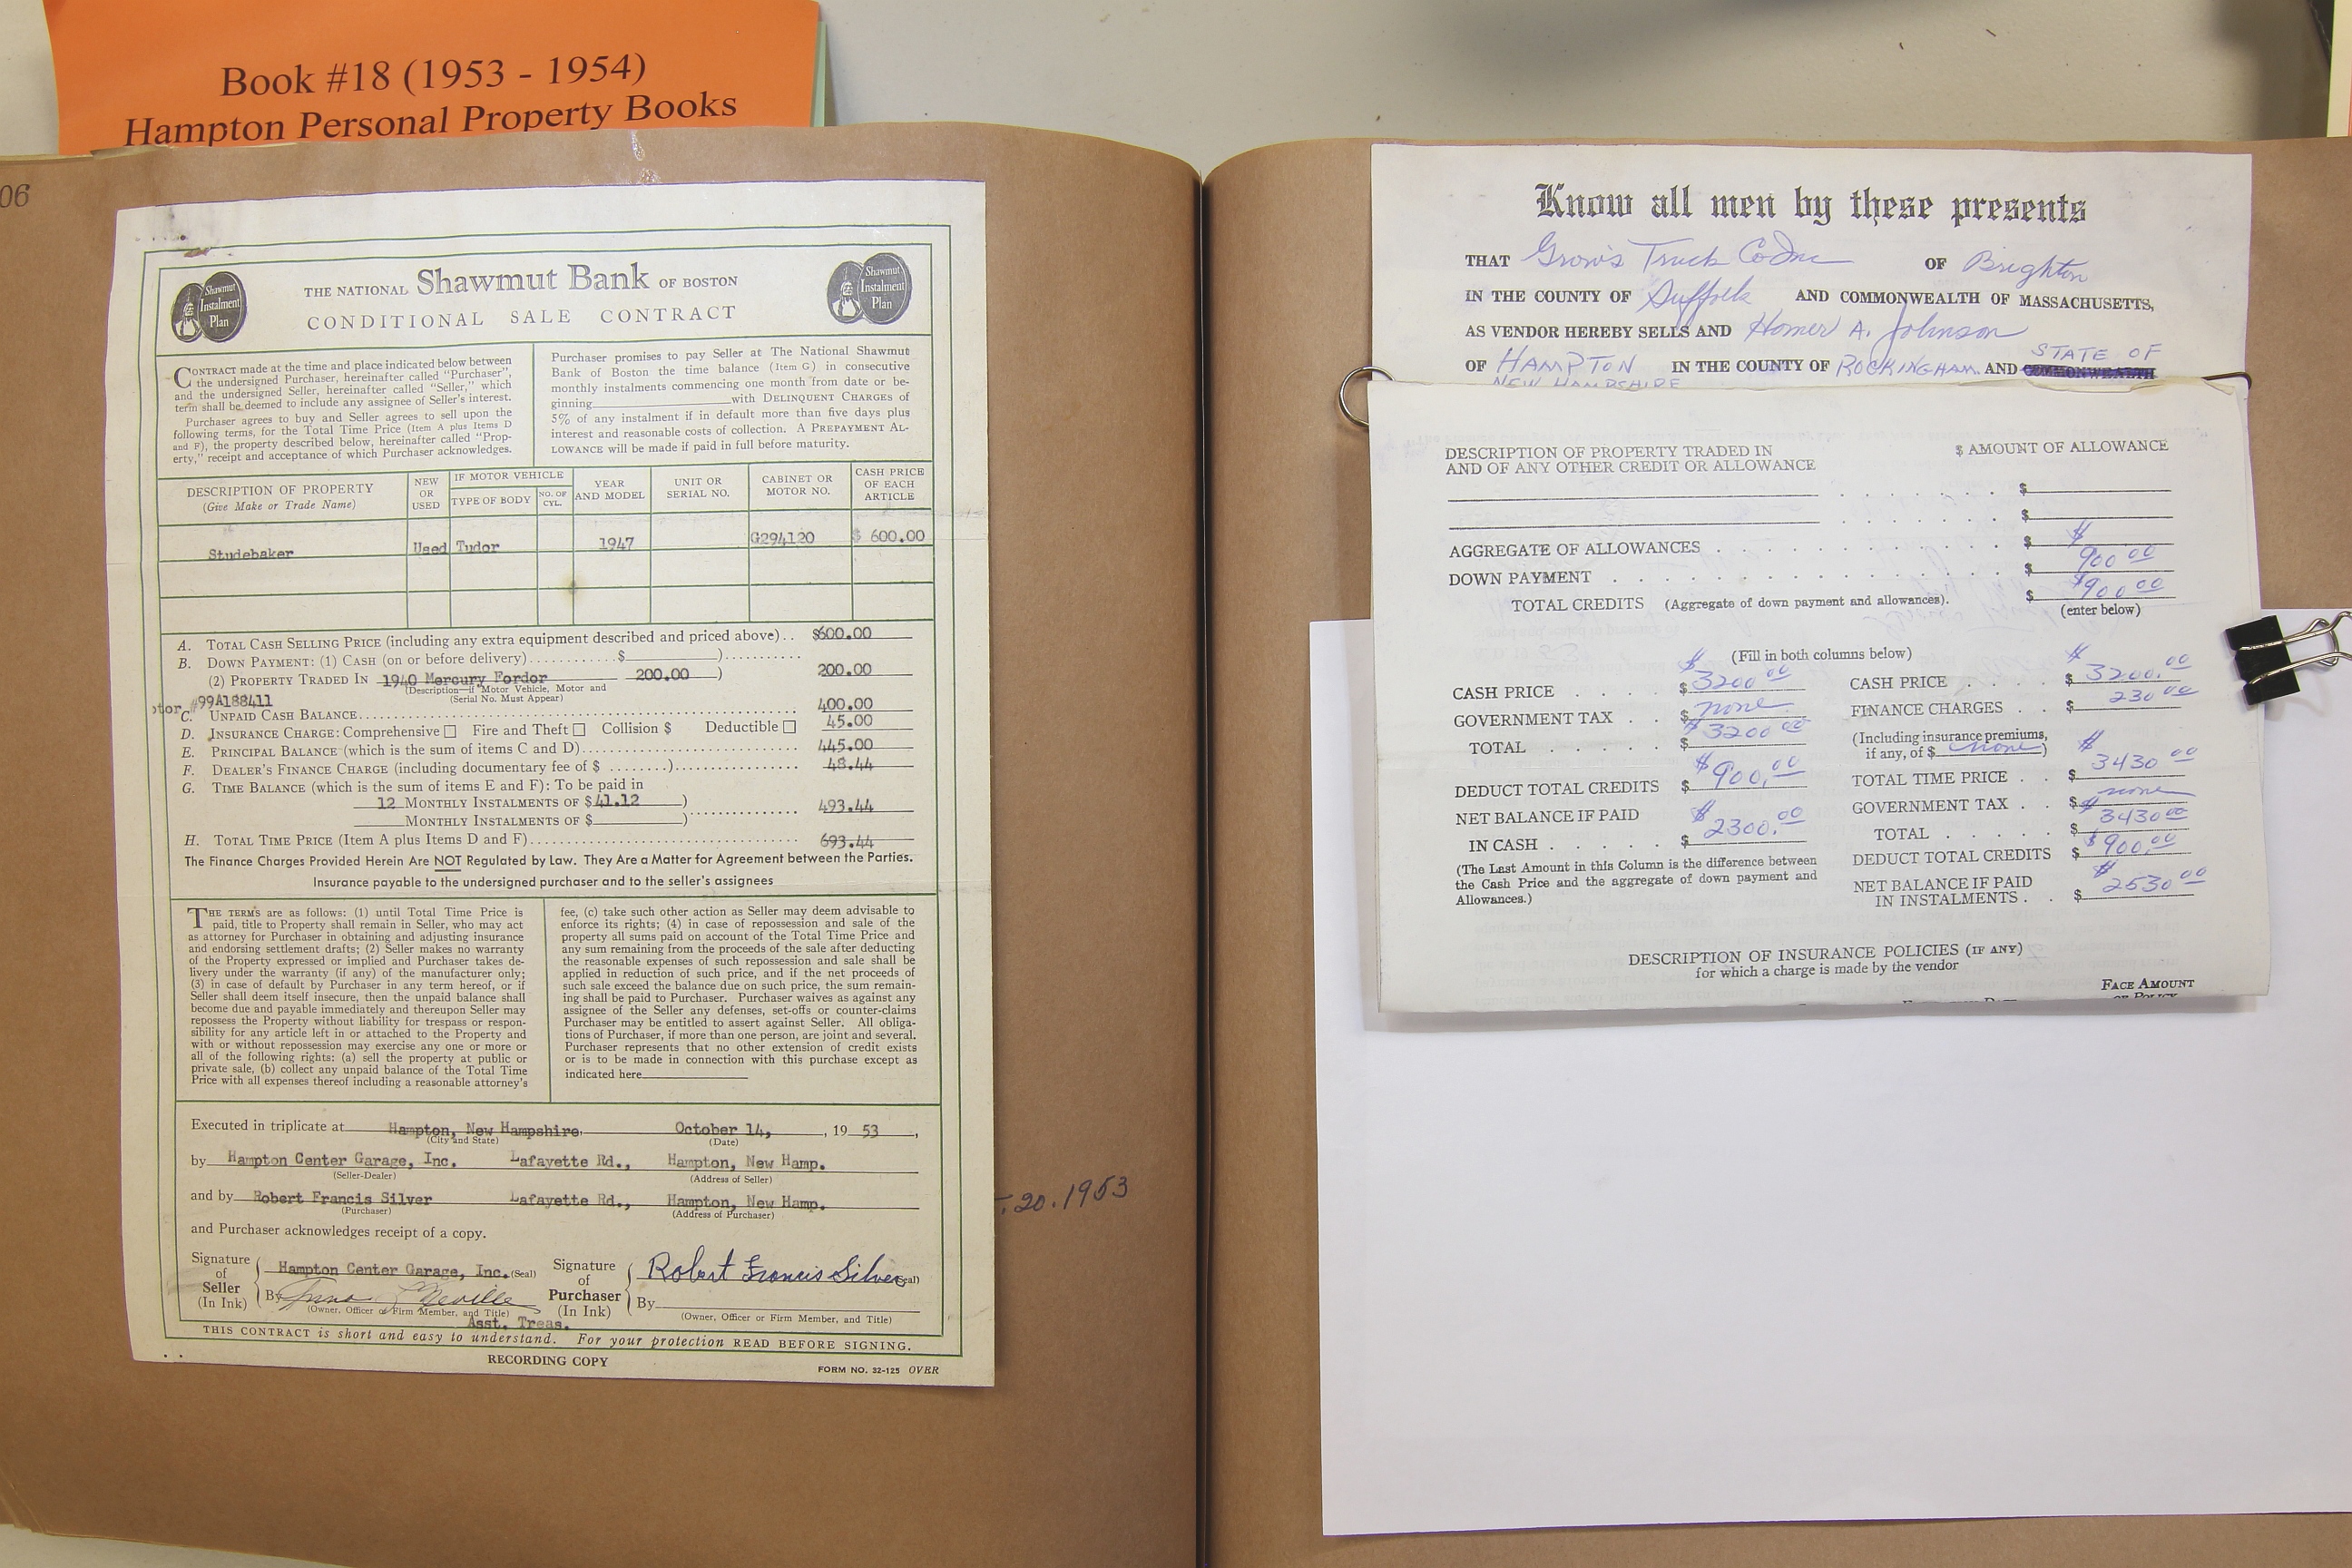 Book #18 (1953 - 1954)
Hampton Personal Property Books
06
Shawmut
Instalment
Plan
THE NATIONAL Shawmut Bank OF BOSTON
CONDITIONAL SALE CONTRACT
Shawmut
Instalment
Plan
CONTRACT made at the time and place indicated below between
the undersigned Purchaser, hereinafter called "Purchaser",
and the undersigned Seller, hereinafter called "Seller," which
term shall be deemed to include any assignee of Seller's interest.
Purchaser agrees to buy and Seller agrees to sell upon the
following terms, for the Total Time Price (Item A plus Items D
and F), the property described below, hereinafter called "Prop-
erty," receipt and acceptance of which Purchaser acknowledges.
Purchaser promises to pay Seller at The National Shawmut
Bank of Boston the time balance (Item G) in consecutive
monthly instalments commencing one month from date or be-
ginning with DELINQUENT CHARGES of
5% of any instalment if in default more than five days plus
interest and reasonable costs of collection. A PREPAYMENT AL-
LOWANCE will be made if paid in full before maturity.
DESCRIPTION OF PROPERTY
(Give Make or Trade Name)
NEW
OR
USED
IF MOTOR VEHICLE
TYPE OF BODY
NO. OF
CYL.
YEAR
AND MODEL
UNIT OR
SERIAL NO.
CABINET OR
MOTOR NO.
CASH PRICE
OF EACH
ARTICLE
Studebaker Used Tudor 1947 G294120 $ 600.00
A. TOTAL CASH SELLING PRICE (including any extra equipment described and priced above) .. $600.00
B. DOWN PAYMENT: (1) CASH (on or before delivery) ............ $ ) ..........
(2) PROPERTY TRADED IN 1940 Mercury Fordor 200.00 ) 200.00
(Description—if Motor Vehicle, Motor and
(Serial No. Must Appear)
otor #99A188411
C. UNPAID CASH BALANCE 400.00
D. INSURANCE CHARGE: Comprehensive □ Fire and Theft □ Collision $ Deductible □ 45.00
E. PRINCIPAL BALANCE (which is the sum of items C and D) 445.00
F. DEALER'S FINANCE CHARGE (including documentary fee of $ ........) 48.44
G. TIME BALANCE (which is the sum of items E and F): To be paid in
12 MONTHLY INSTALMENTS OF $ 41.12 ) 493.44
MONTHLY INSTALMENTS OF $ )
H. TOTAL TIME PRICE (Item A plus Items D and F) 693.44
The Finance Charges Provided Herein Are NOT Regulated by Law. They Are a Matter for Agreement between the Parties.
Insurance payable to the undersigned purchaser and to the seller's assignees
THE TERMS are as follows: (1) until Total Time Price is
paid, title to Property shall remain in Seller, who may act
as attorney for Purchaser in obtaining and adjusting insurance
and endorsing settlement drafts; (2) Seller makes no warranty
of the Property expressed or implied and Purchaser takes de-
livery under the warranty (if any) of the manufacturer only;
(3) in case of default by Purchaser in any term hereof, or if
Seller shall deem itself insecure, then the unpaid balance shall
become due and payable immediately and thereupon Seller may
repossess the Property without liability for trespass or respon-
sibility for any article left in or attached to the Property and
with or without repossession may exercise any one or more or
all of the following rights: (a) sell the property at public or
private sale, (b) collect any unpaid balance of the Total Time
Price with all expenses thereof including a reasonable attorney's
fee, (c) take such other action as Seller may deem advisable to
enforce its rights; (4) in case of repossession and sale of the
property all sums paid on account of the Total Time Price and
any sum remaining from the proceeds of the sale after deducting
the reasonable expenses of such repossession and sale shall be
applied in reduction of such price, and if the net proceeds of
such sale exceed the balance due on such price, the sum remain-
ing shall be paid to Purchaser. Purchaser waives as against any
assignee of the Seller any defenses, set-offs or counter-claims
Purchaser may be entitled to assert against Seller. All obliga-
tions of Purchaser, if more than one person, are joint and several.
Purchaser represents that no other extension of credit exists
or is to be made in connection with this purchase except as
indicated here
Executed in triplicate at Hampton, New Hampshire. October 14, , 19 53 ,
(City and State) (Date)
by Hampton Center Garage, Inc. Lafayette Rd., Hampton, New Hamp.
(Seller-Dealer) (Address of Seller)
and by Robert Francis Silver Lafayette Rd., Hampton, New Hamp.
(Purchaser) (Address of Purchaser)
and Purchaser acknowledges receipt of a copy.
Signature
of
Seller
(In Ink)
Hampton Center Garage, Inc. (Seal)
By Neville
(Owner, Officer or Firm Member, and Title)
Asst. Treas.
Signature
of
Purchaser
(In Ink)
Robert Francis Silver (Seal)
By
(Owner, Officer or Firm Member, and Title)
THIS CONTRACT is short and easy to understand. For your protection READ BEFORE SIGNING.
RECORDING COPY
FORM NO. 32-125 OVER
. 20. 1953
Know all men by these presents
THAT Grow's Truck Co Inc OF Brighton
IN THE COUNTY OF Suffolk AND COMMONWEALTH OF MASSACHUSETTS,
AS VENDOR HEREBY SELLS AND Homer A. Johnson
OF HAMPTON IN THE COUNTY OF ROCKINGHAM. AND COMMONWEALTH STATE OF
NEW HAMPSHIRE
DESCRIPTION OF PROPERTY TRADED IN
AND OF ANY OTHER CREDIT OR ALLOWANCE
$ AMOUNT OF ALLOWANCE
$
$
AGGREGATE OF ALLOWANCES $
DOWN PAYMENT $ 900 00
TOTAL CREDITS (Aggregate of down payment and allowances). $ 900 00
(enter below)
(Fill in both columns below)
CASH PRICE $ 3200 00
GOVERNMENT TAX $ none
TOTAL $ 3200 00
DEDUCT TOTAL CREDITS $ 900.00
NET BALANCE IF PAID
IN CASH $ 2300.00
(The Last Amount in this Column is the difference between
the Cash Price and the aggregate of down payment and
Allowances.)
CASH PRICE $ 3200.00
FINANCE CHARGES $ 230 00
(Including insurance premiums,
if any, of $ none )
TOTAL TIME PRICE $ 3430 00
GOVERNMENT TAX $ none
TOTAL $ 3430 00
DEDUCT TOTAL CREDITS $ 900.00
NET BALANCE IF PAID
IN INSTALMENTS $ 2530 00
DESCRIPTION OF INSURANCE POLICIES (IF ANY)
for which a charge is made by the vendor
FACE AMOUNT
OF POLICY